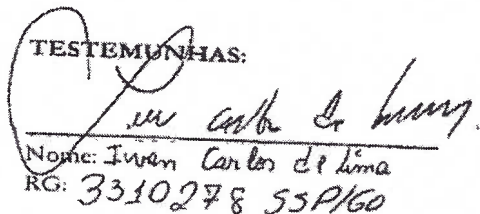 TESTEMUNHAS:
Carlos de
Nome: Ivan Carlos de Lima
RG: 3310278 SSP/GO